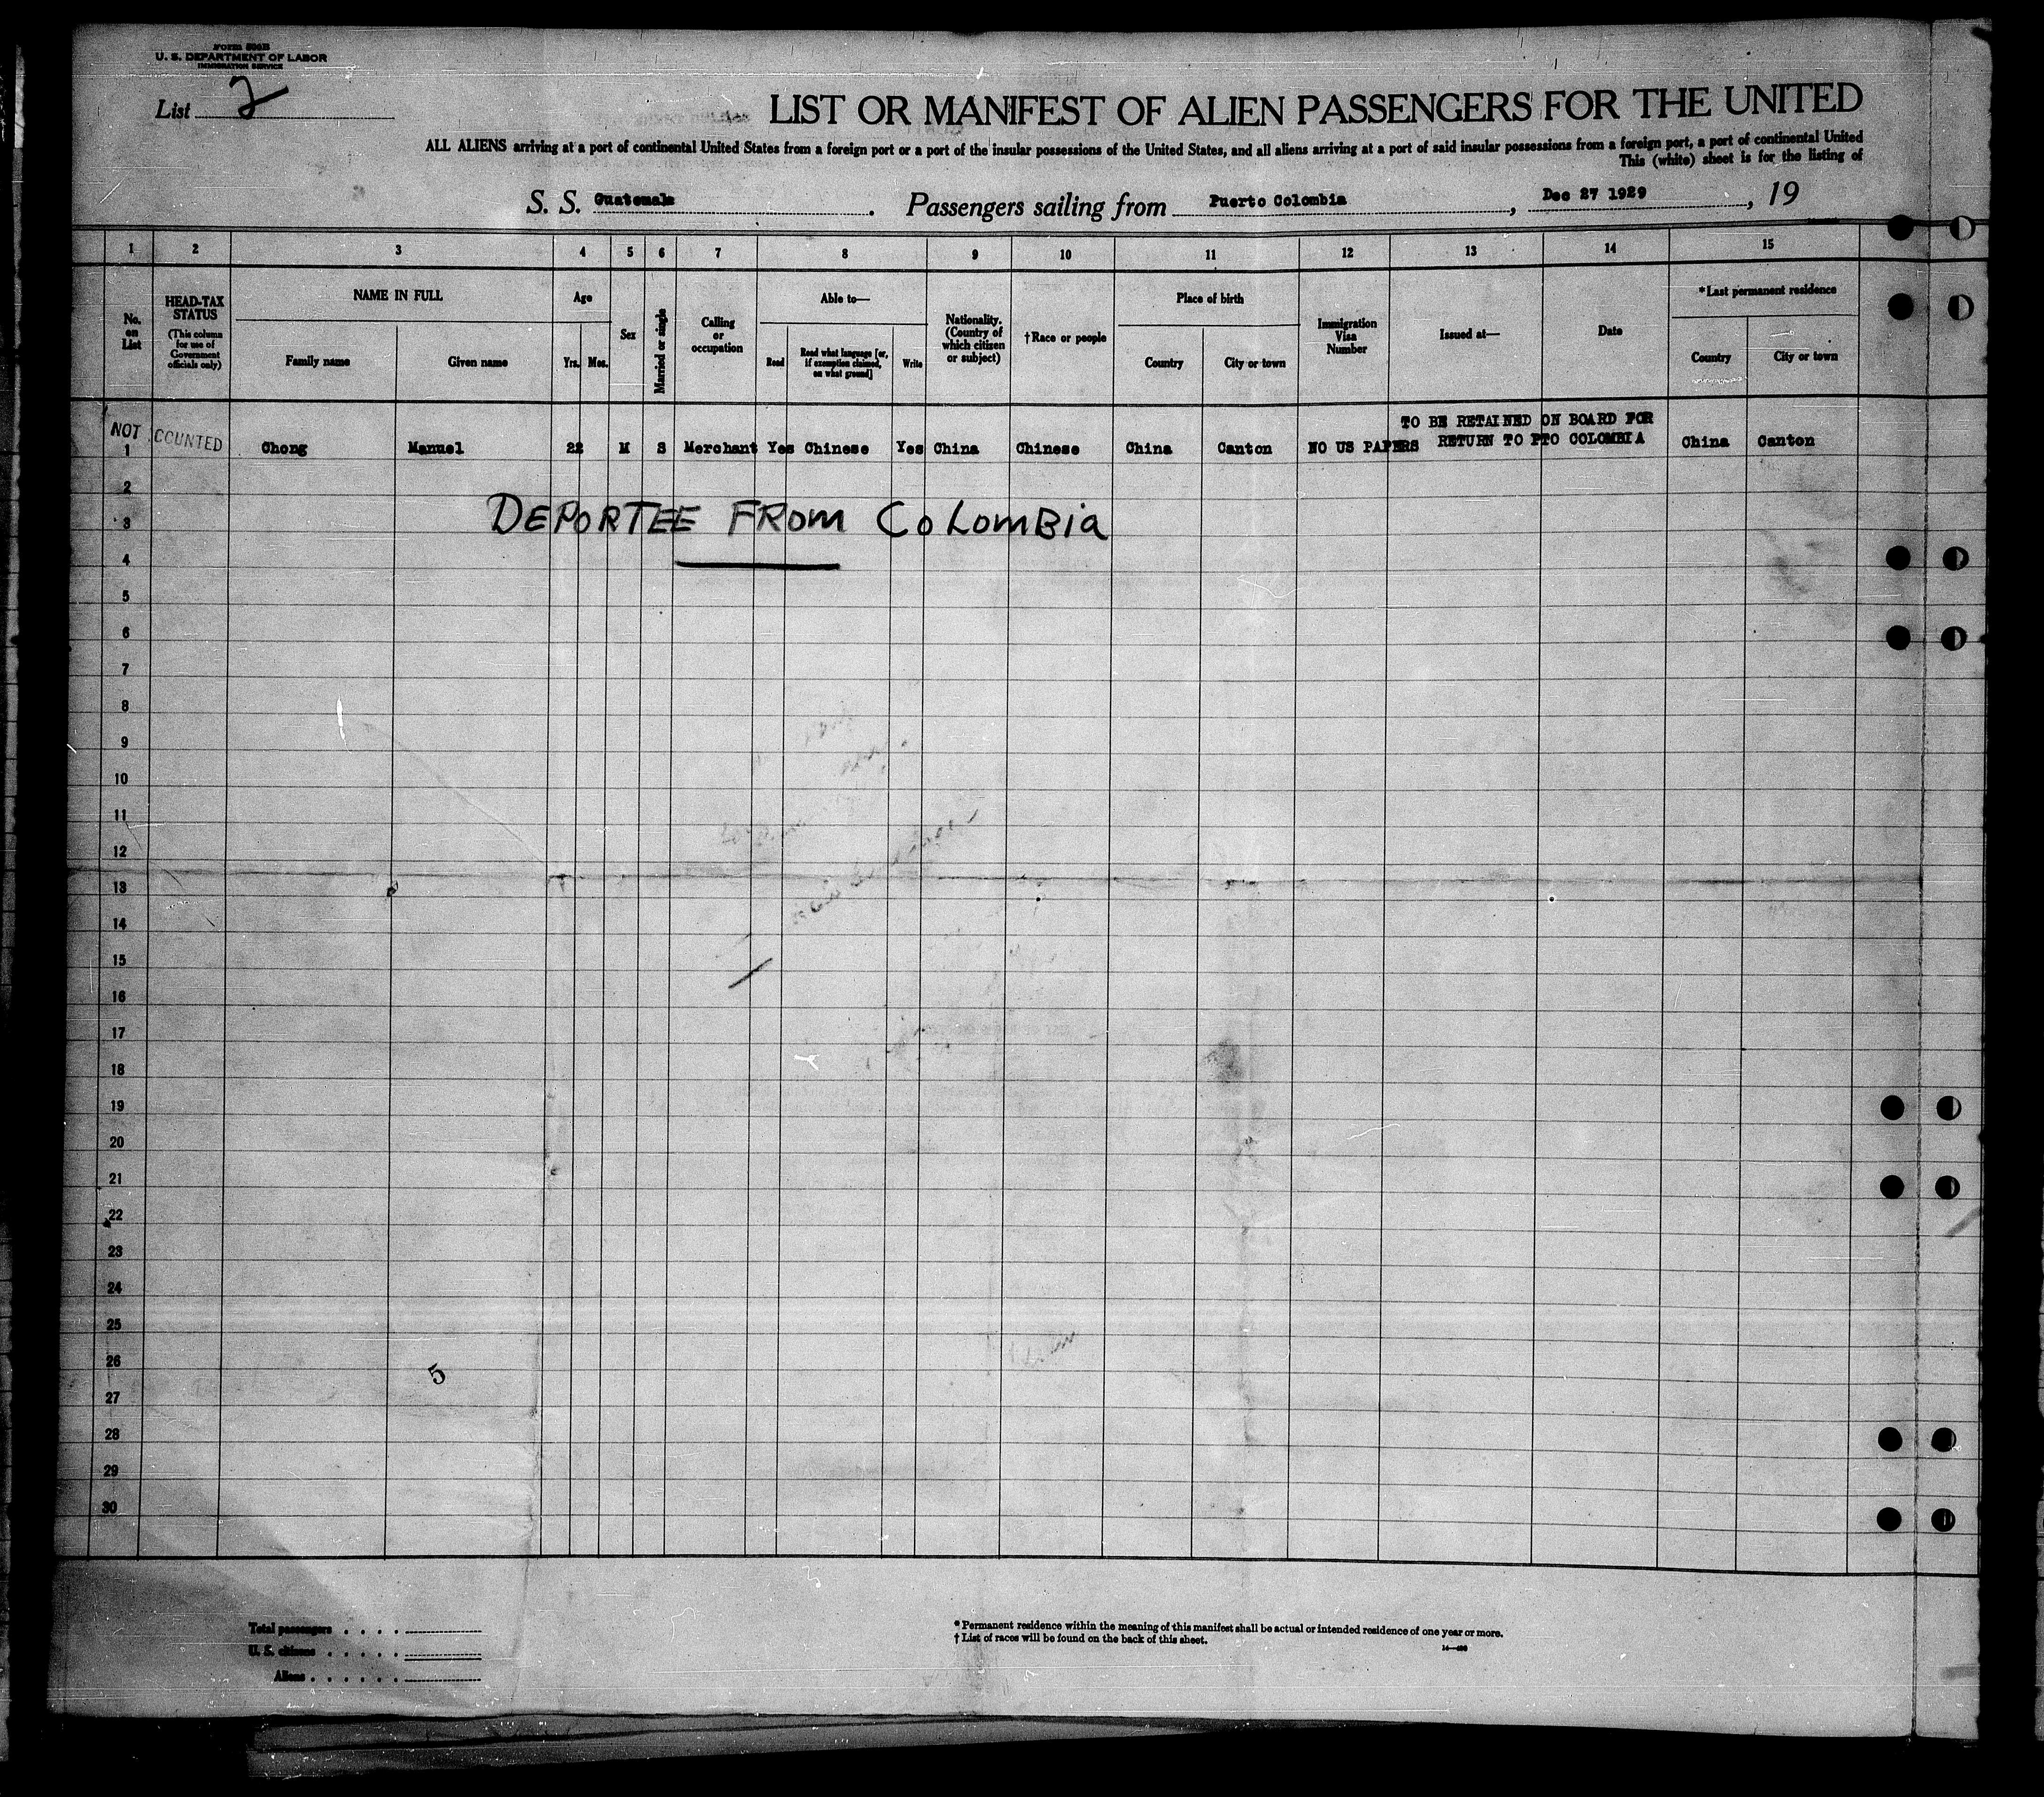 Form 500B
U. S. DEPARTMENT OF LABOR
IMMIGRATION SERVICE
List 2
LIST OR MANIFEST OF ALIEN PASSENGERS FOR THE UNITED
ALL ALIENS arriving at a port of continental United States from a foreign port or a port of the insular possessions of the United States, and all aliens arriving at a port of said insular possessions from a foreign port, a port of continental United
This (white) sheet is for the listing of
S. S. Guatemala. Passengers sailing from Puerto Colombia, Dec 27 1929, 19
1 2 3 4 5 6 7 8 9 10 11 12 13 14 15
No. on List
HEAD-TAX STATUS (This column for use of Government officials only)
NAME IN FULL
Family name Given name
Age
Yrs. Mos.
Sex
Married or single
Calling or occupation
Able to—
Read Read what language [or, if exemption claimed, on what ground] Write
Nationality. (Country of which citizen or subject)
†Race or people
Place of birth
Country City or town
Immigration Visa Number
Issued at—
Date
*Last permanent residence
Country City or town
NOT COUNTED
TO BE RETAINED ON BOARD FOR
RETURN TO PTO COLOMBIA
1 Chong Manuel 22 M S Merchant Yes Chinese Yes China Chinese China Canton NO US PAPERS China Canton
2
DEPORTEE FROM COLOMBIA
3
4
5
6
7
8
9
10
11
12
13
14
15
16
17
18
19
20
21
22
23
24
25
26
5
27
28
29
30
Total passengers . . . .
U. S. citizens . . . . .
Aliens . . . . . .
* Permanent residence within the meaning of this manifest shall be actual or intended residence of one year or more.
† List of races will be found on the back of this sheet.